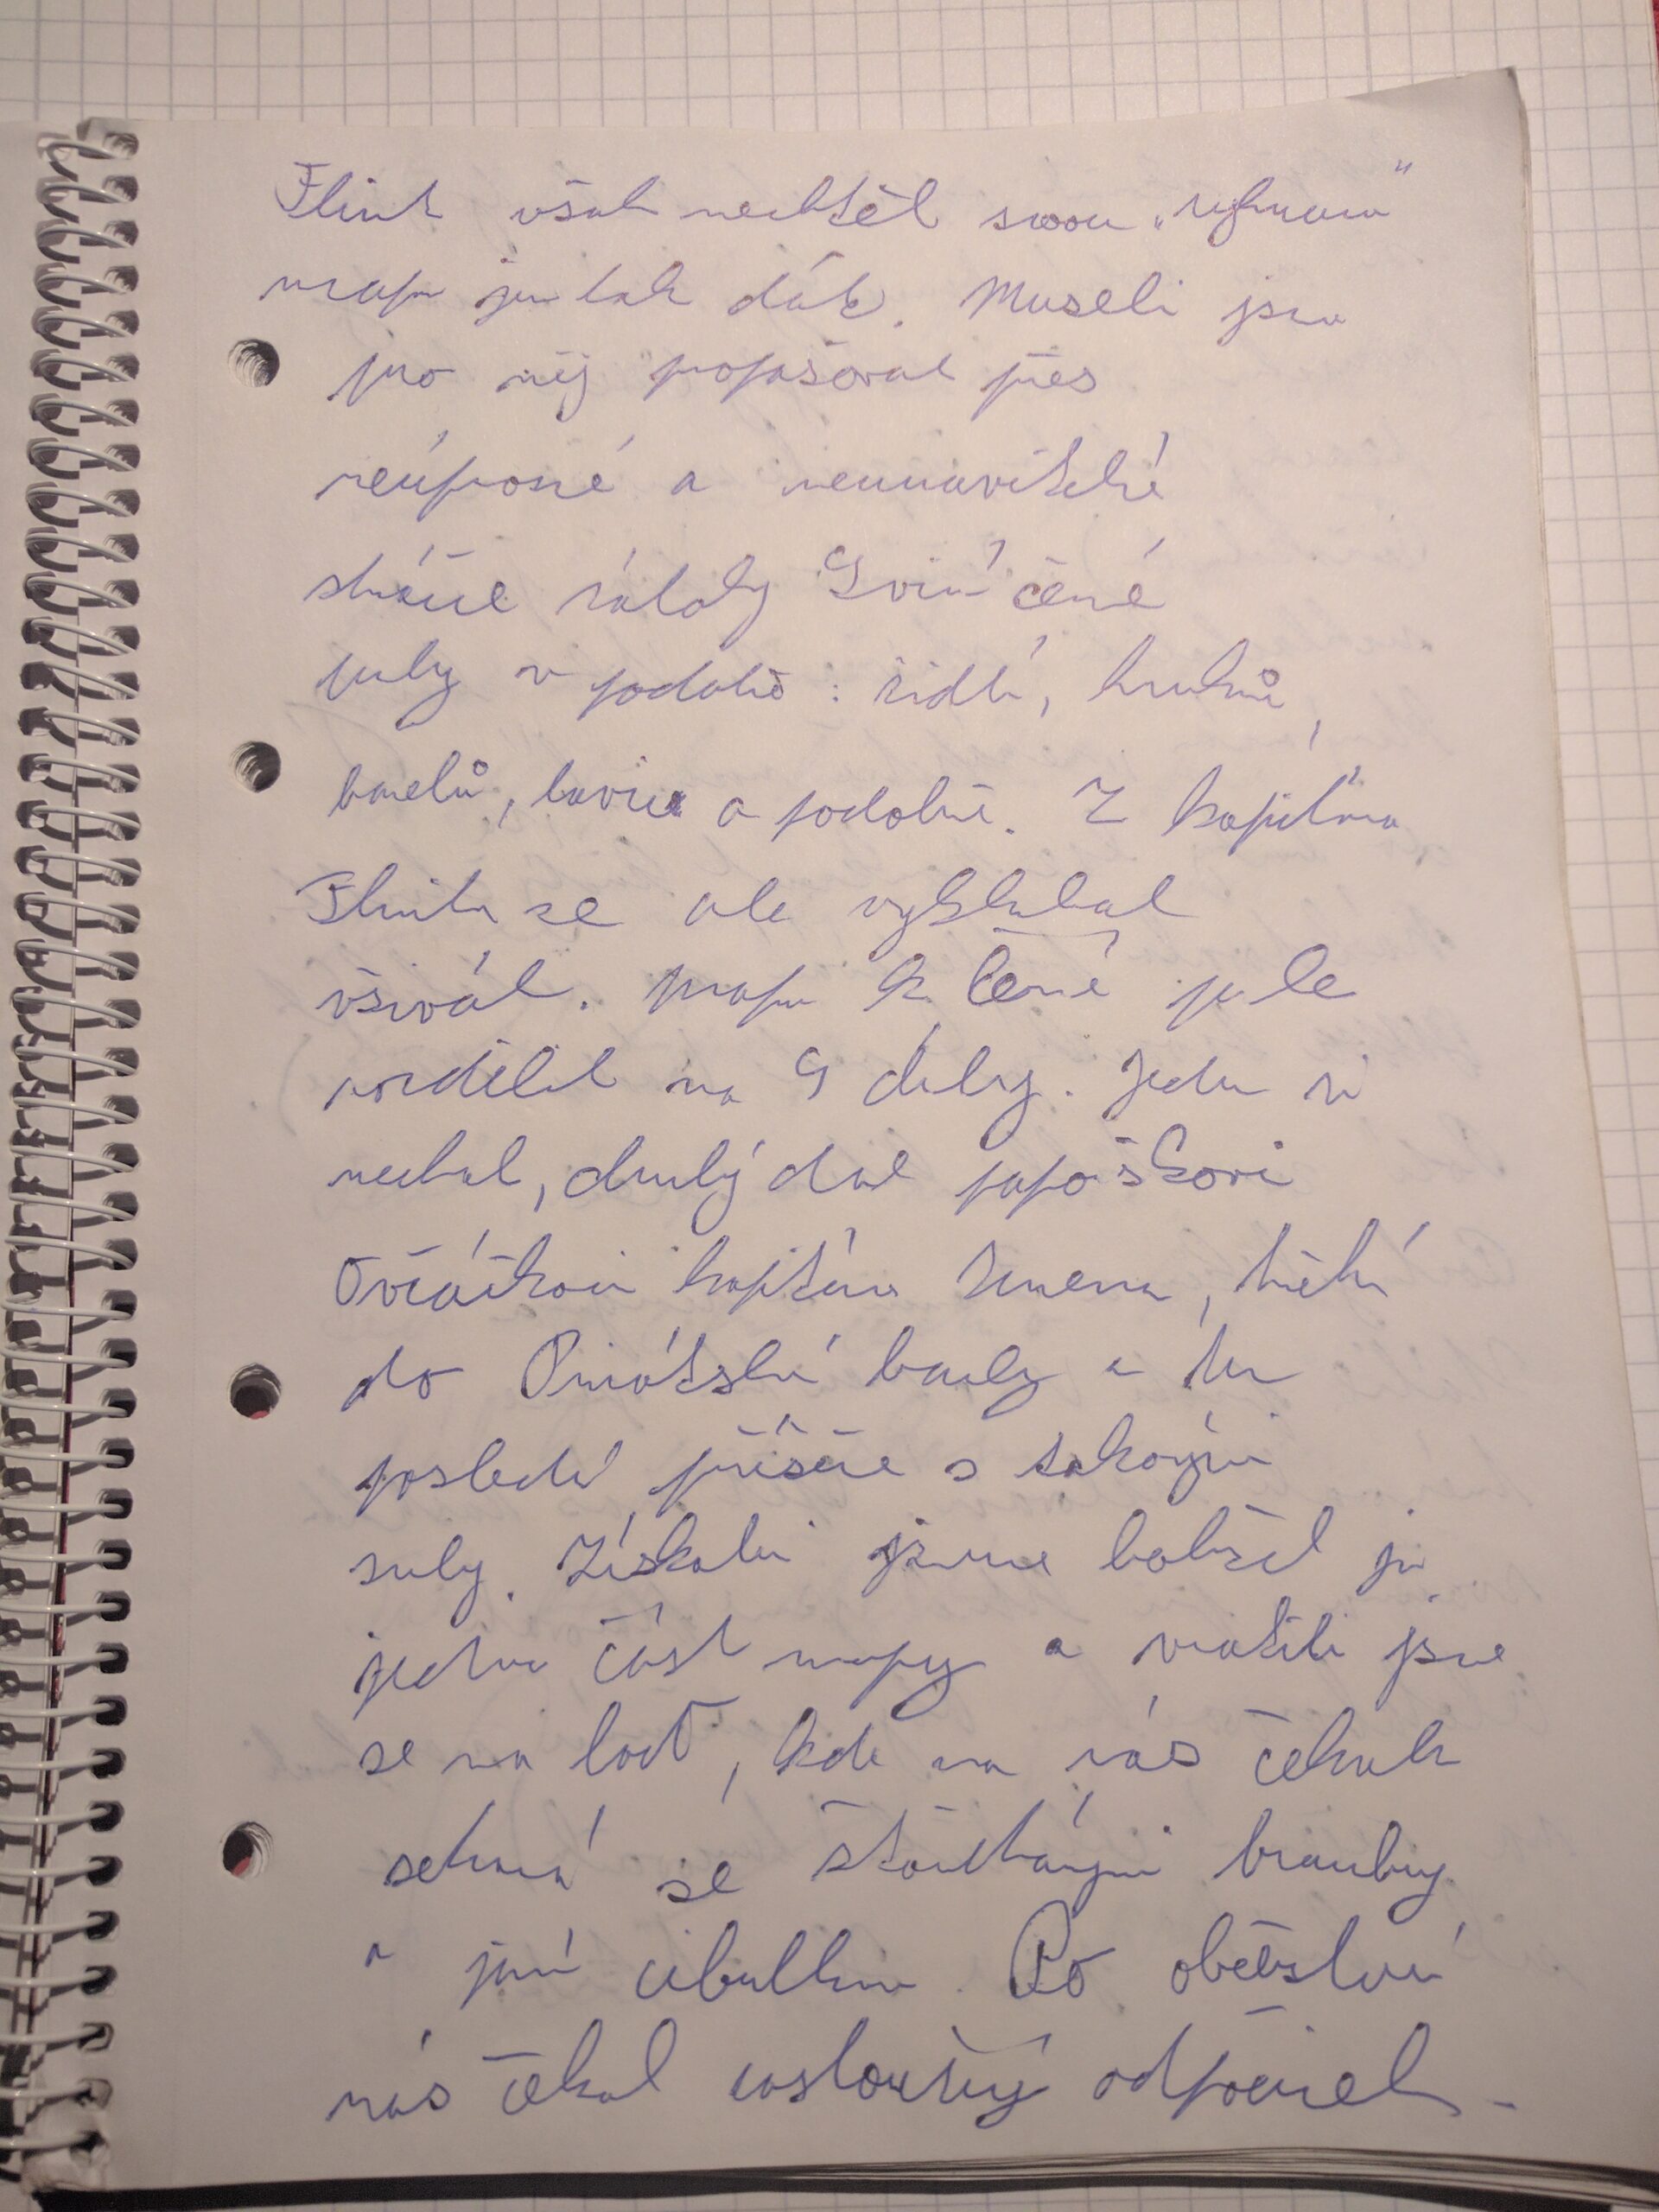 Flint však nechtěl svou "
mapu jen tak dát. Museli jsme
pro něj propašovat přes
neúprosné a neúnavné
stráže náklady Sviň černé
perly v podobě: židlí, hrnků,
barelů, lavic a podobně. Z kapitána
Flinta se ale vyklubal
všivák. Mapu k Černé perle
rozdělil na 4 díly. Jeden si
nechal, druhý dal papouškovi
Ovčáčkovi kapitána, třetí
do Pirátské bandy a ten
poslední příšeře s takovými
zuby. Získali jsme bohužel jen
jednu část mapy a vrátili jsme
se na loď, kde na nás čekala
sekaná se šťouchanými brambory
a jarní cibulkou. Po občerstvení
nás čekal zasloužený odpočinek.